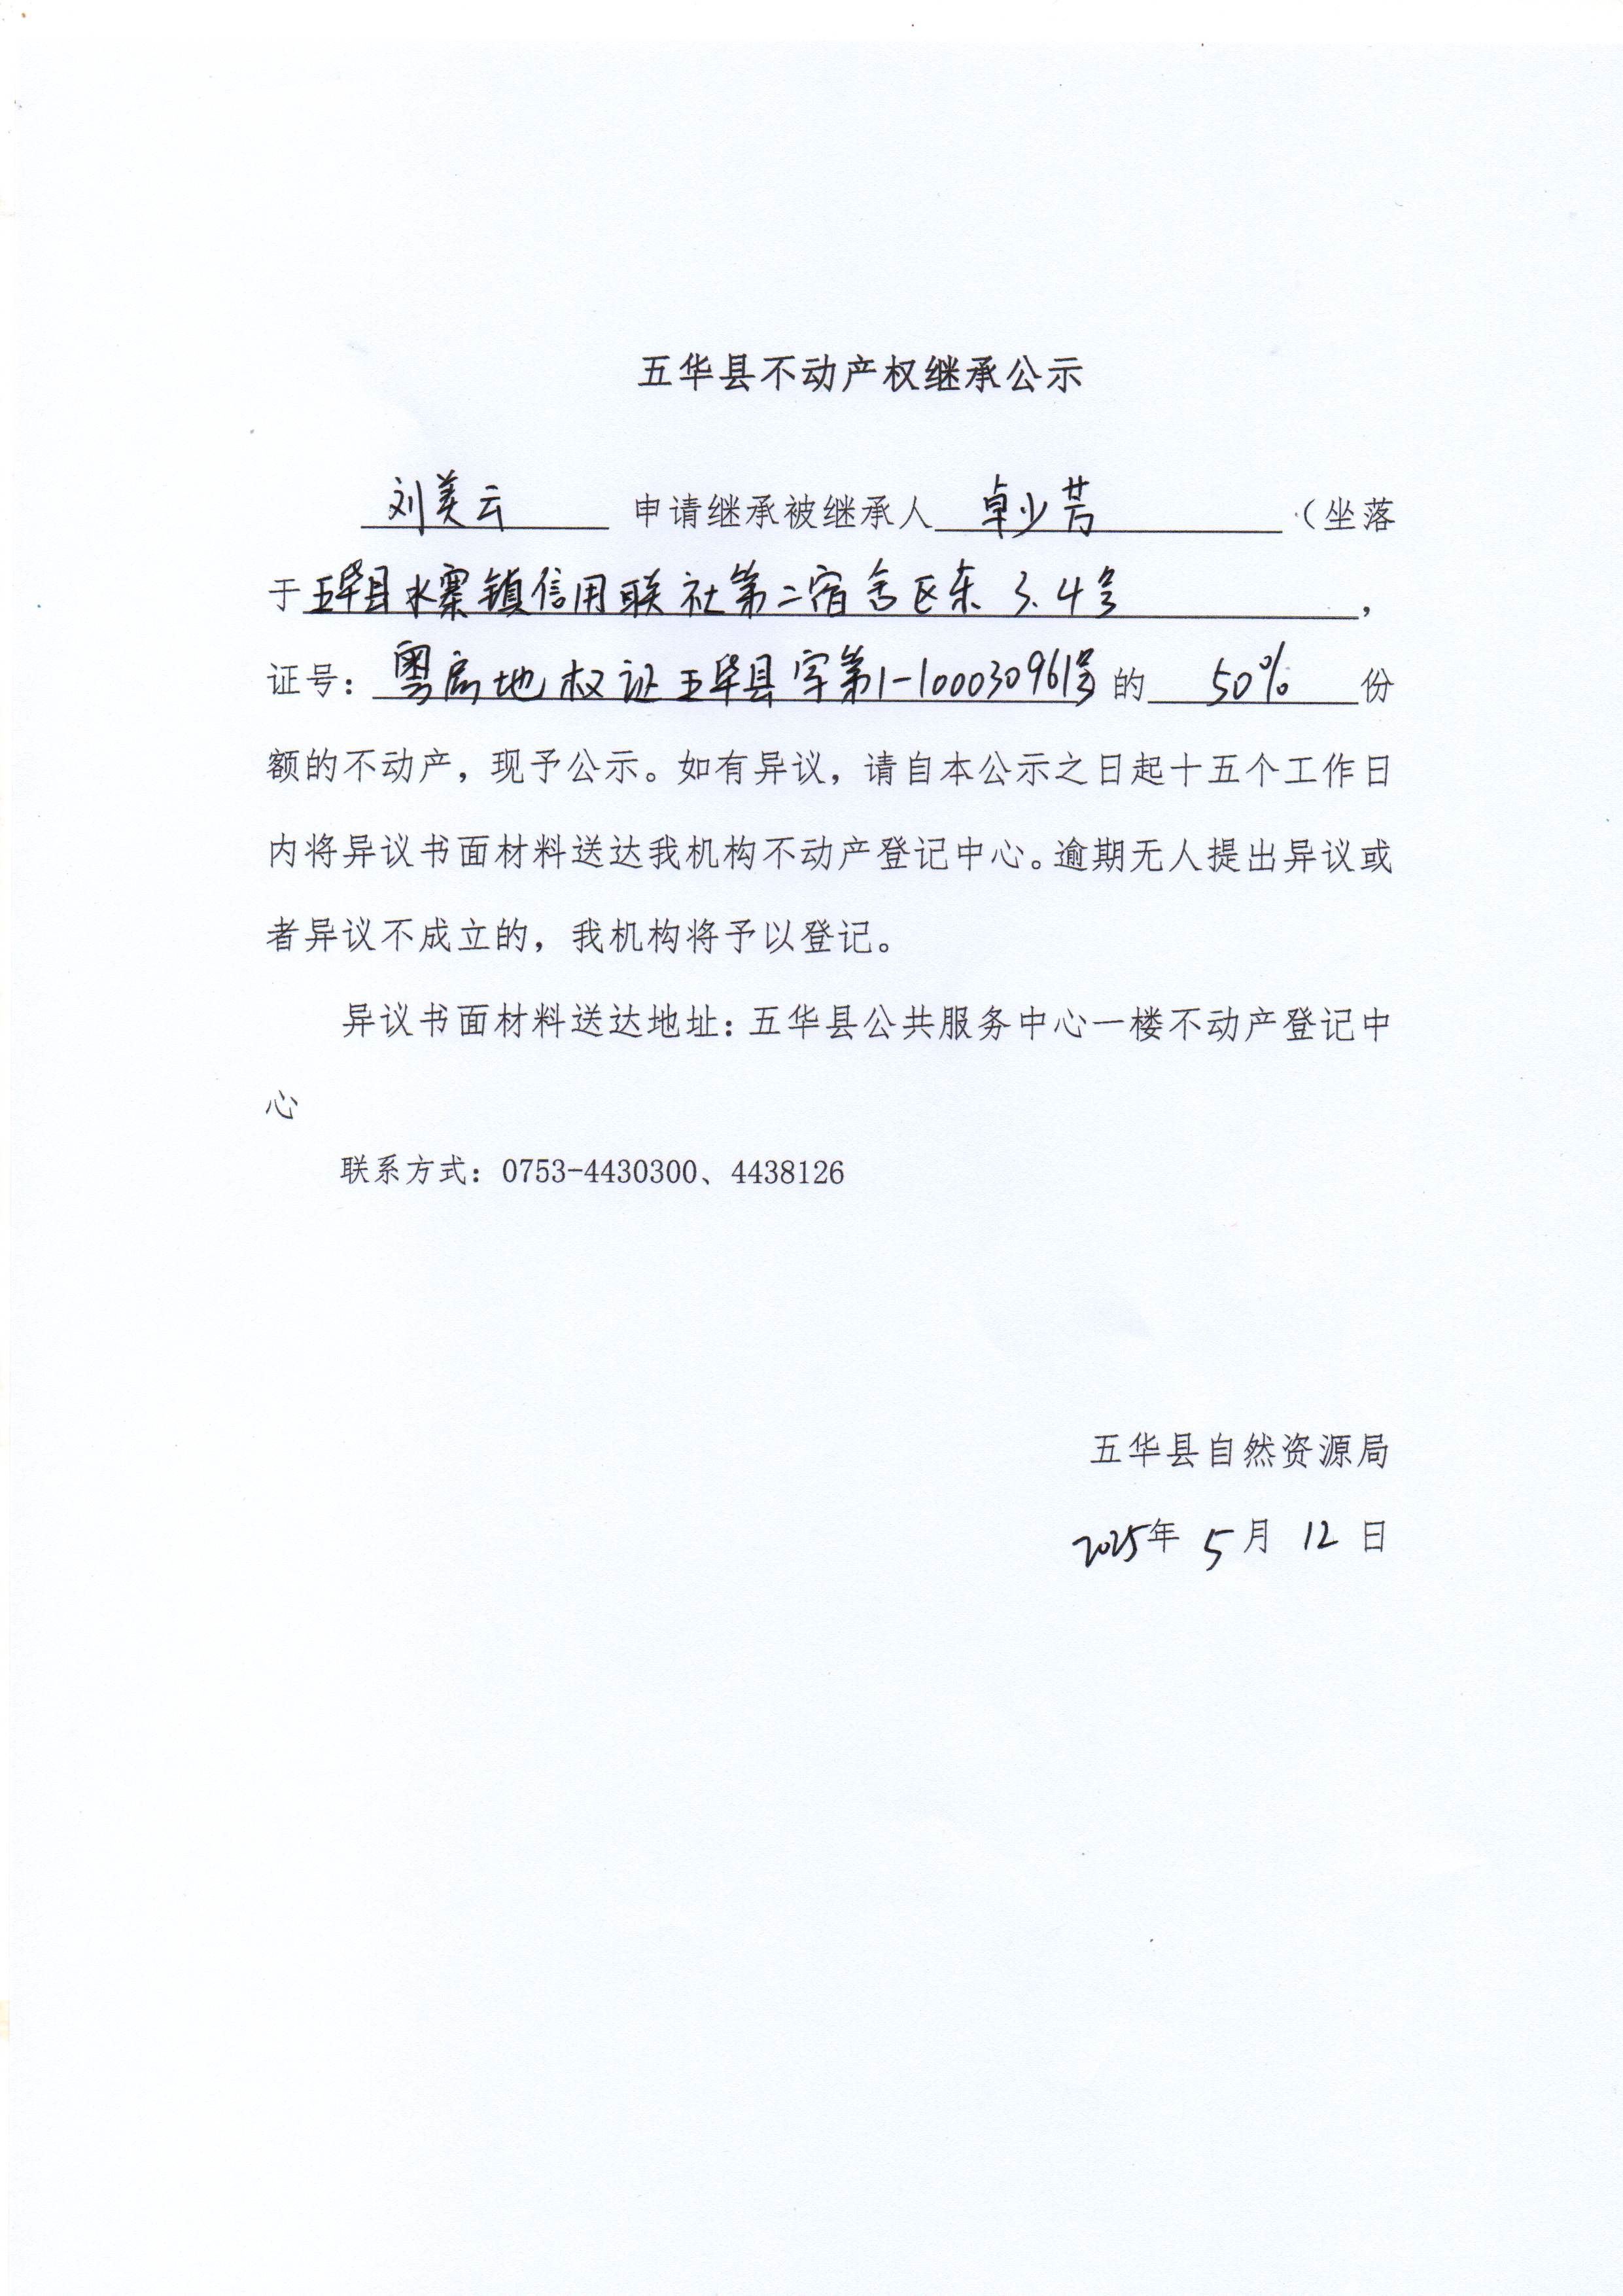 五华县不动产权继承公示
刘美云 申请继承被继承人 卓少芳 （坐落
于五华县水寨镇信用联社第二宿舍区东3.4号，
证号：粤房地权证五华县字第1-100030961号的 50% 份
额的不动产，现予公示。如有异议，请自本公示之日起十五个工作日
内将异议书面材料送达我机构不动产登记中心。逾期无人提出异议或
者异议不成立的，我机构将予以登记。
异议书面材料送达地址：五华县公共服务中心一楼不动产登记中
心
联系方式：0753-4430300、4438126
五华县自然资源局
2025年 5 月 12 日